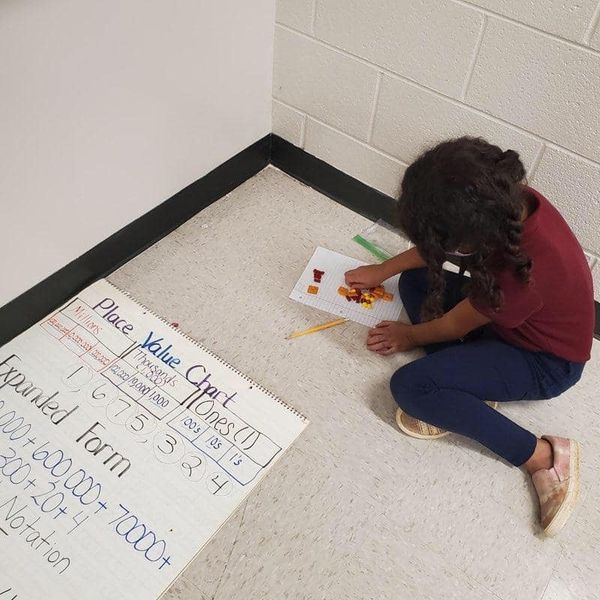 Place Value Chart
Millions Thousands Ones (1)
100's 10s 1's
1, 675, 324
Expanded Form
600,000 + 70000 +
300 + 20 + 4
Notation